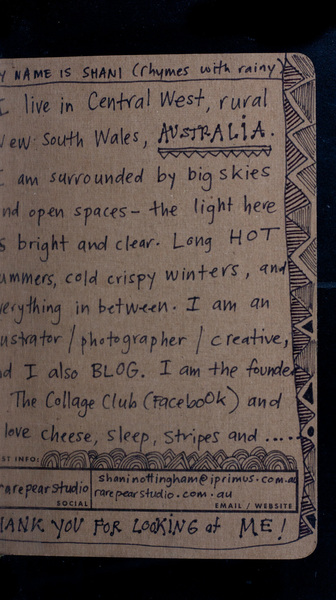 Y NAME IS SHANI (rhymes with rainy)
I live in Central West, rural
New South Wales, AUSTRALIA.
I am surrounded by big skies
and open spaces - the light here
is bright and clear. Long HOT
ummers, cold crispy winters, and
verything in between. I am an
ustrator / photographer / creative,
nd I also BLOG. I am the founder
The Collage Club (Facebook) and
love cheese, sleep, stripes and .....
ST INFO:
rarepearstudio
shaninottingham@iprimus.com.au
rarepearstudio.com.au
SOCIAL
EMAIL / WEBSITE
HANK YOU FOR LOOKING at ME!